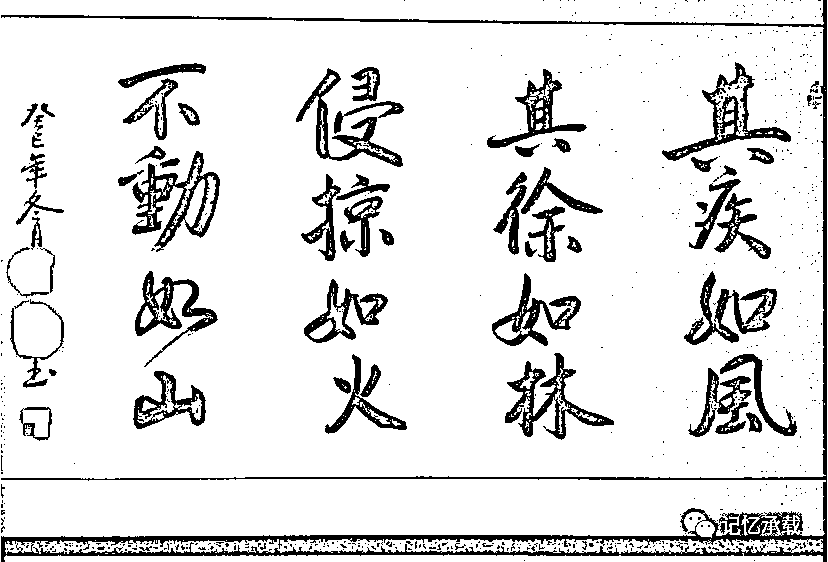 其疾如風
其徐如林
侵掠如火
不動如山
癸巳年冬月
玉
记忆承载